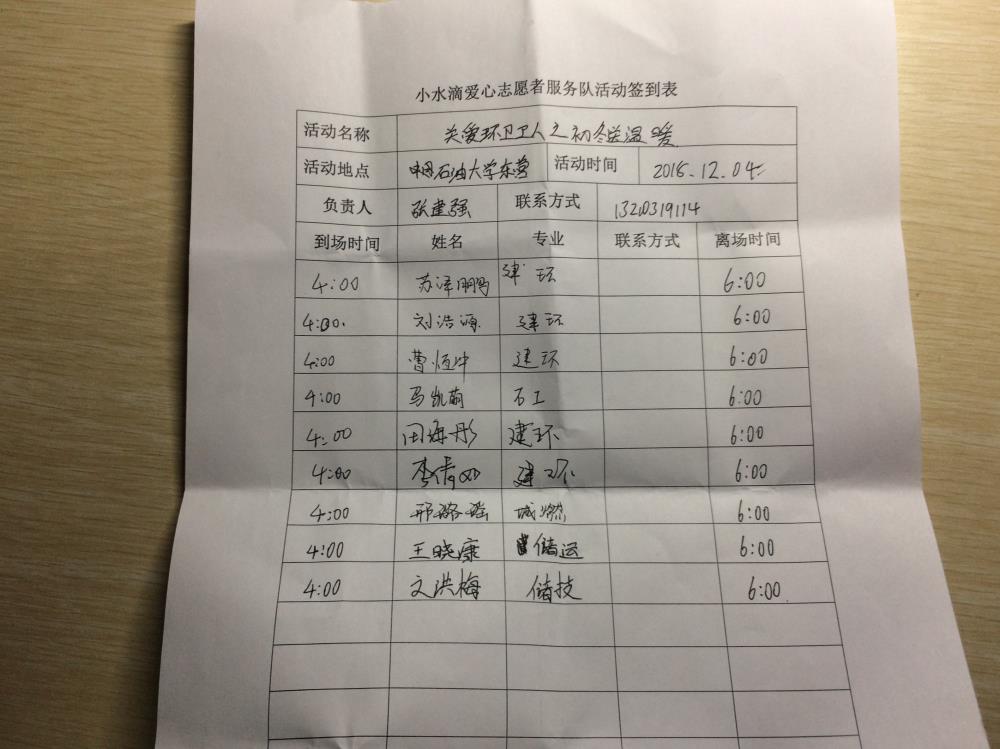 小水滴爱心志愿者服务队活动签到表
活动名称 关爱环卫工人之初冬送温暖
活动地点 中国石油大学东营 活动时间 2016.12.04
负责人 张建强 联系方式 13220319114
到场时间 姓名 专业 联系方式 离场时间
4:00 苏泽鹏 建环 6:00
4:00 刘浩源 建环 6:00
4:00 曹恒 建环 6:00
4:00 马凯萌 石工 6:00
4:00 田海彤 建环 6:00
4:00 李倩如 建环 6:00
4:00 邢璐瑶 城燃 6:00
4:00 王晓康 储运 6:00
4:00 文洪梅 储技 6:00